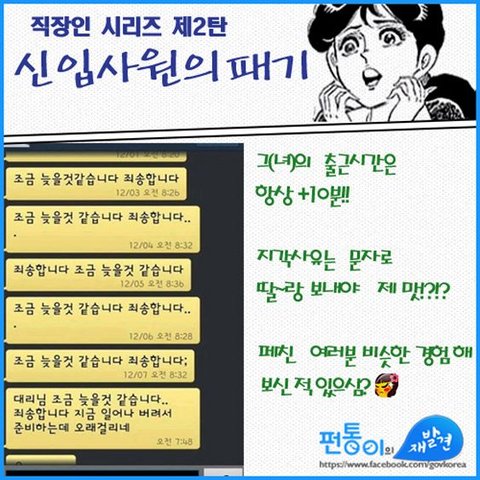 직장인 시리즈 제2탄
신입사원의 패기
12/01 오전 8:20
조금 늦을것같습니다 죄송합니다
12/03 오전 8:26
조금 늦을것 같습니다 죄송합니다..
.
12/04 오전 8:32
죄송합니다 조금 늦을것 같습니다
12/05 오전 8:36
조금 늦을것 같습니다 죄송합니다..
.
12/06 오전 8:28
조금 늦을것 같습니다 죄송합니다;
12/07 오전 8:32
대리님 조금 늦을것 같습니다..
죄송합니다 지금 일어나 버려서
준비하는데 오래걸리네
오전 7:48
그(녀)의 출근시간은
항상 +10분!!
지각사유는 문자로
딸~랑 보내야 제 맛?!?!
페친 여러분 비슷한 경험 해
보신 적 있으심?
펀통이의 재발견
https://www.facebook.com/govkorea